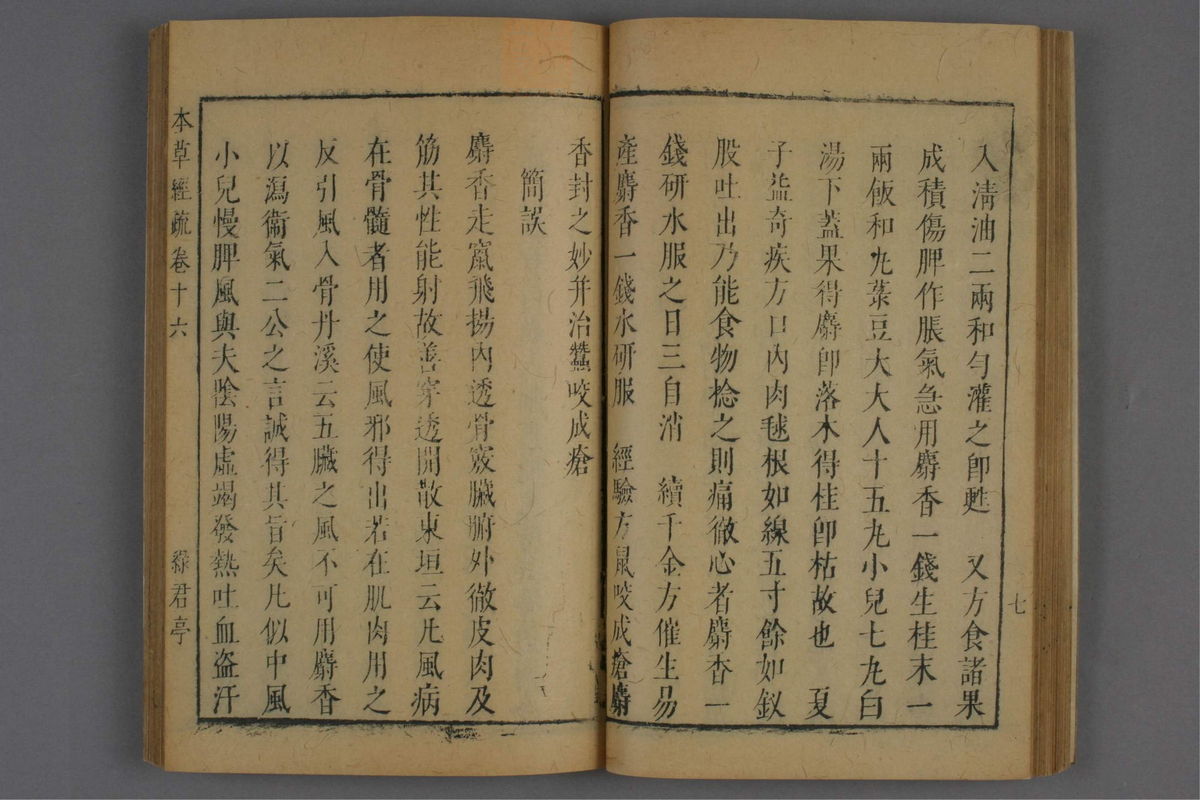 入淸油二兩和勻灌之卽甦　又方食諸果
成積傷脾作脹氣急用麝香一錢生桂末一
兩飯和丸菉豆大大人十五丸小兒七丸白
湯下蓋果得麝卽落木得桂卽枯故也　夏
子益奇疾方口內肉毬根如線五寸餘如釵
股吐出乃能食物捻之則痛徹心者麝香一
錢研水服之日三自消　續千金方催生易
產麝香一錢水研服　經驗方鼠咬成瘡麝
七
香封之妙幷治蠶咬成瘡
簡誤
麝香走竄飛揚內透骨竅臟腑外徹皮肉及
筋其性能射故善穿透開散東垣云凡風病
在骨髓者用之使風邪得出若在肌肉用之
反引風入骨丹溪云五臟之風不可用麝香
以瀉衞氣二公之言誠得其旨矣凡似中風
小兒慢脾風與夫陰陽虛竭發熱吐血盜汗
本草經疏卷十六　綠君亭